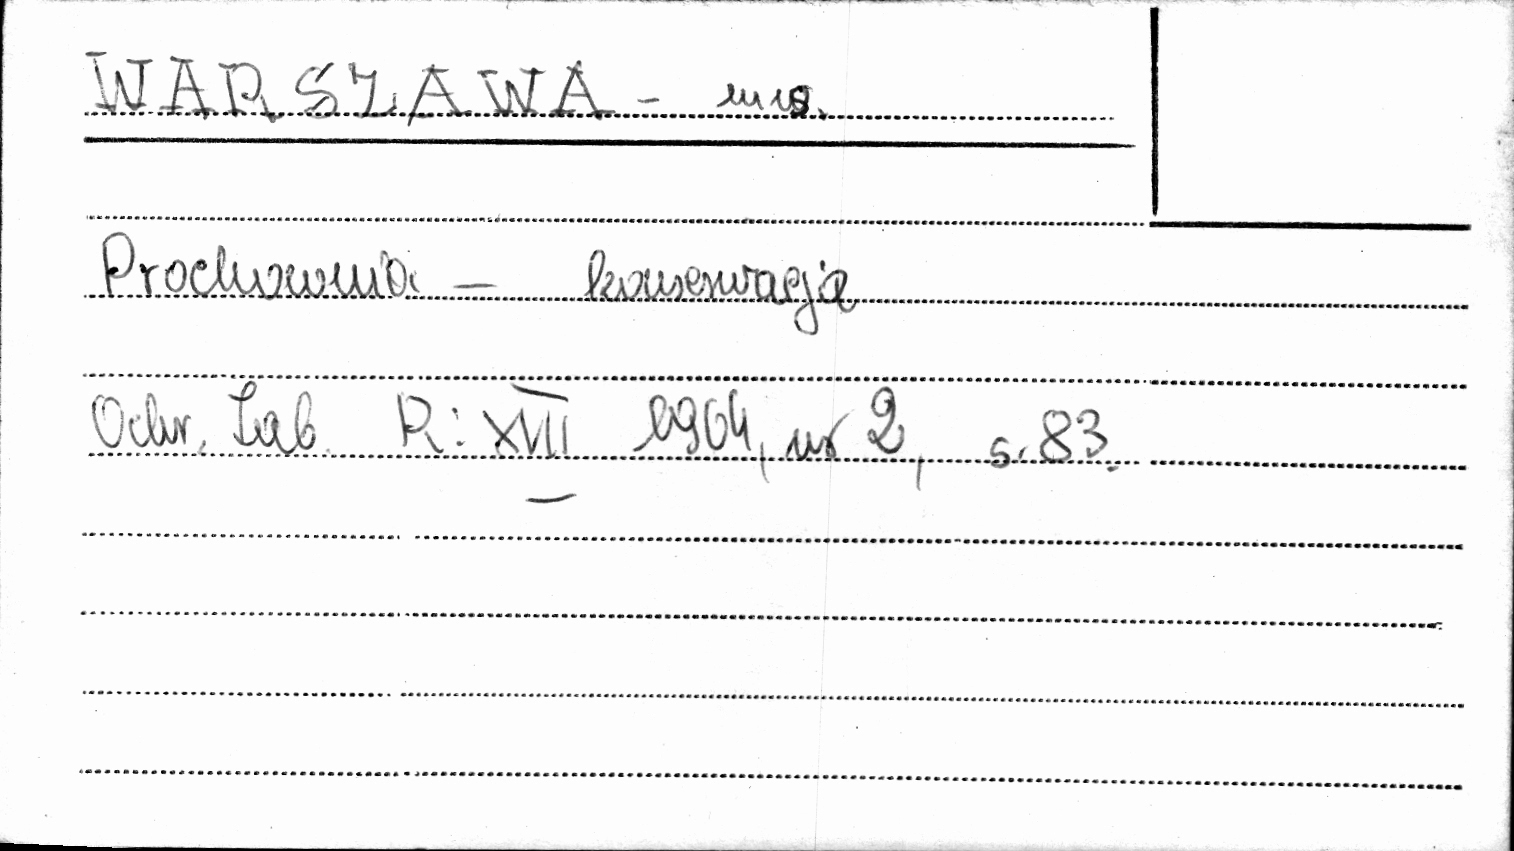 WARSZAWA - m.
Prochownia - konserwacja
Ochr. Zab. R: XVII 1964, nr 2, s. 83.